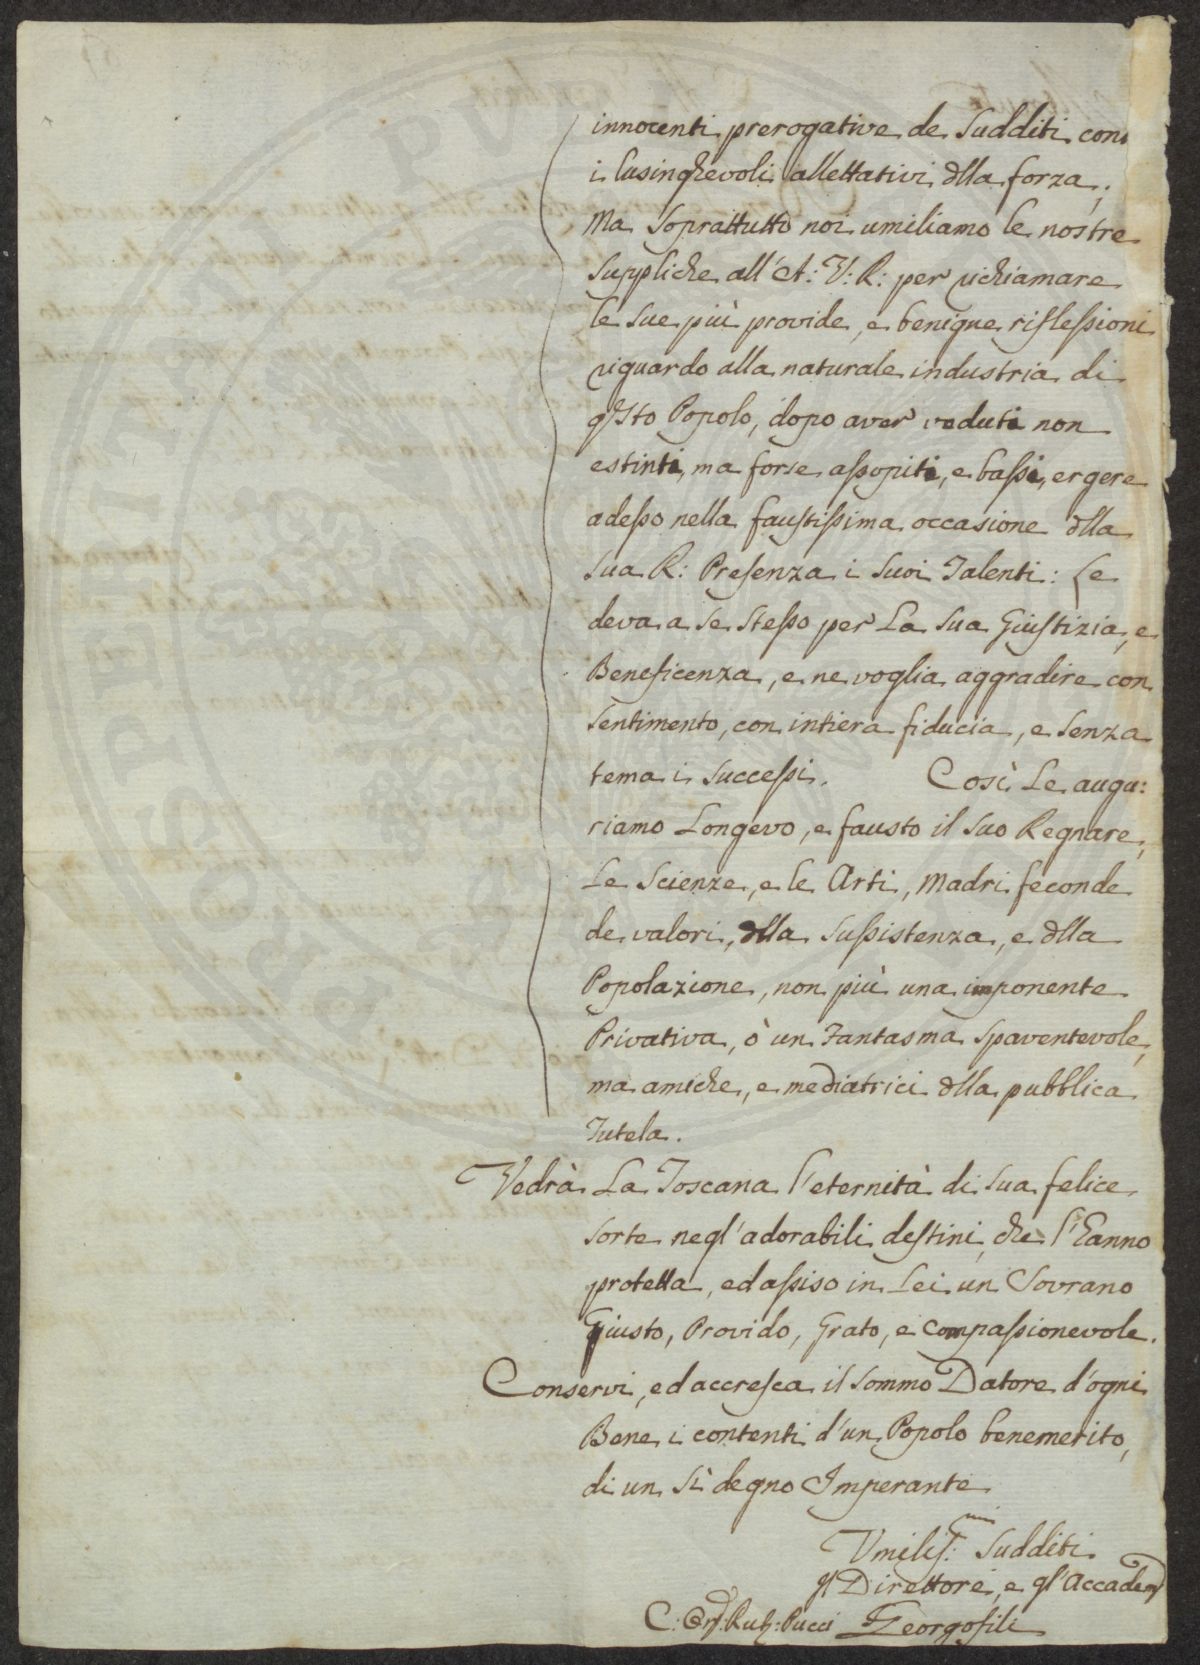 innocenti prerogative de Sudditi con
i lusinghevoli allettativi dlla forza;
Ma Soprattutto noi umiliamo le nostre
Suppliche all' A: V: R: per richiamare
le Sue più provide, e benigne riflessioni
riguardo alla naturale industria di
qsto Popolo, dopo aver veduti non
estinti, ma forse assopiti, e bassi, ergere
adesso nella faustissima occasione dlla
Sua R: Presenza i Suoi Talenti: Se
deva a Se Stesso per La Sua Giustizia, e
Beneficenza, e ne voglia aggradire con
Sentimento, con intiera fiducia, e Senza
tema i Successi. Così Le augu:
riamo Longevo, e fausto il Suo Regnare,
Le Scienze, e le Arti, Madri feconde
de valori, dlla Sussistenza, e dlla
Popolazione, non più una imponente
Privativa, ò un Fantasma Spaventevole,
ma amiche, e mediatrici dlla pubblica
Tutela.
Vedrà La Toscana l'eternità di Sua felice
Sorte negl'adorabili destini, che l'hanno
protetta, ed assiso in Lei un Sovrano
Giusto, Provido, Grato, e Compassionevole.
Conservi, ed accresca il Sommo Datore d'ogni
Bene i contenti d'un Popolo benemerito,
di un Sì degno Imperante
Umiliss:mi Sudditi
Il Direttore, e gl'Accadem
C: Rub: Pucci Georgofili